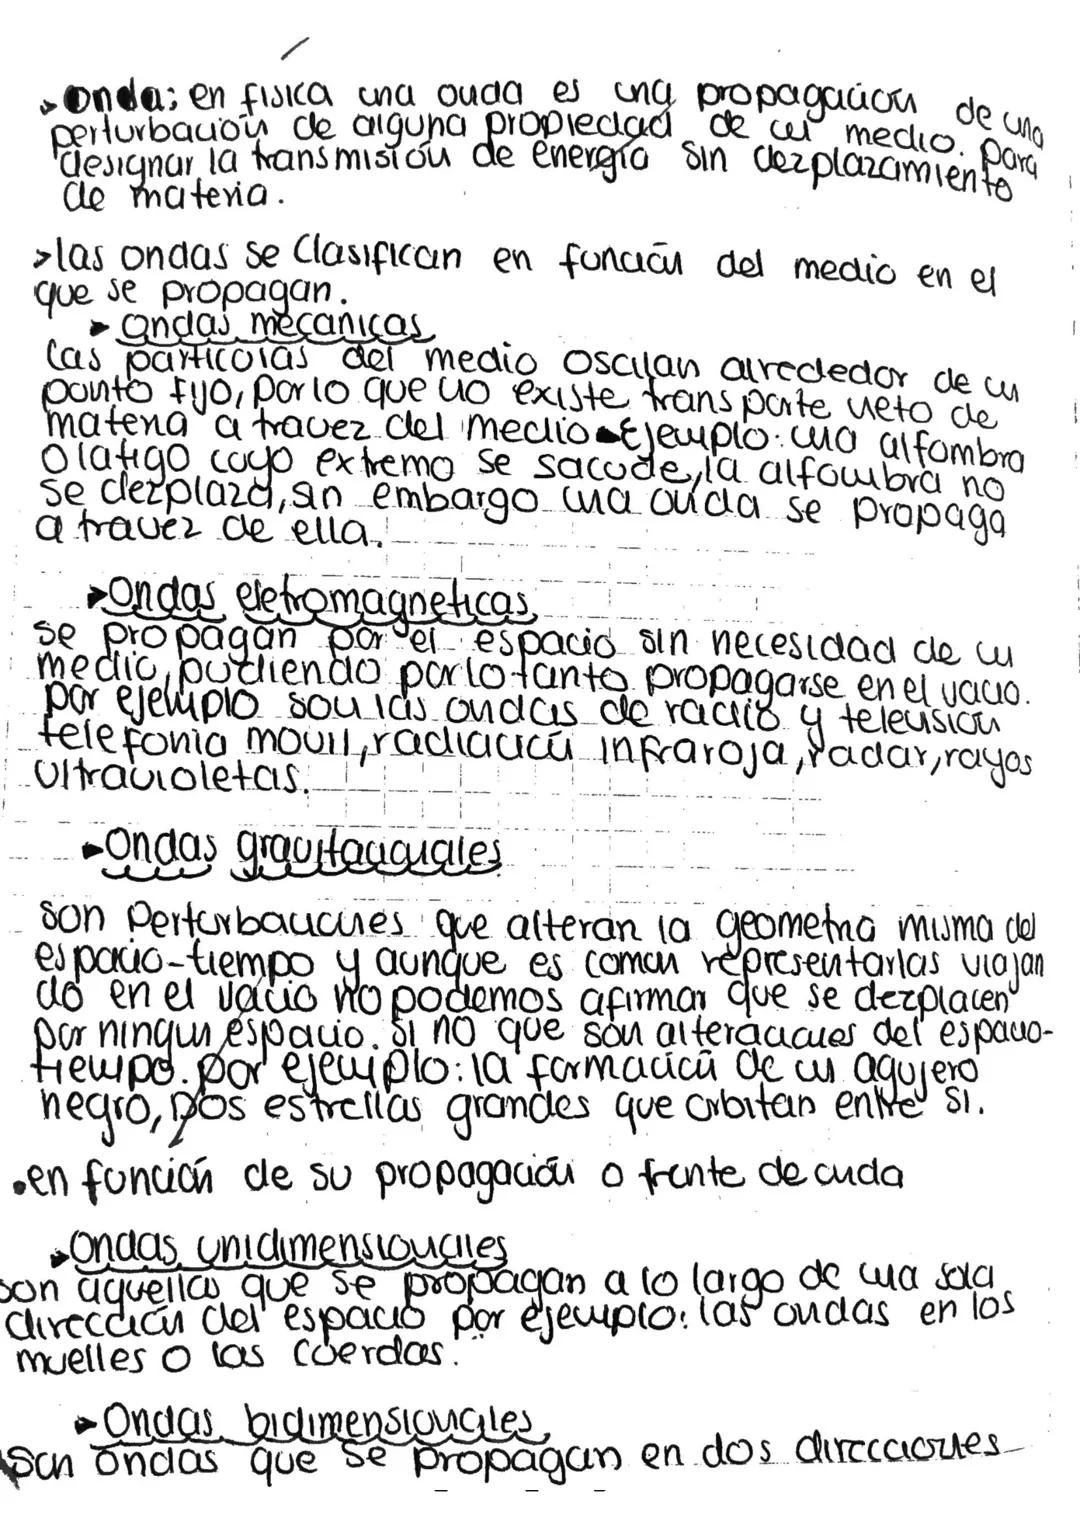 ▸ onda: en fisica una onda es una propagación de una
perturbación de alguna propiedad de un medio. para
designar la transmisión de energía sin dezplazamiento
de materia.
>las ondas se Clasifican en función del medio en el
que se propagan.
▸ ondas mecanicas
las particolas del medio oscilan alrededor de un
ponto fijo, por lo que no existe transporte neto de
materia a travez del medio ▸Ejemplo: una alfombra
o latigo coyo extremo se sacude, la alfombra no
se dezplaza, sin embargo una onda se propaga
a travez de ella.
▸Ondas eletromagneticas
se propagan por el espacio sin necesidad de un
medio, pudiendo por lo tanto propagarse en el vacio.
por ejemplo son las ondas de radio y television
telefonia movil, radiación infraroja, radar, rayos
ultravioletas.
▸Ondas gravitacionales
son Perturbaciones que alteran la geometria misma del
espacio-tiempo y aunque es comun representarlas viajan
do en el vacio no podemos afirmar que se dezplacen
por ningun espacio. si no que son alteraciones del espacio-
tiempo. por ejemplo: la formación de un agujero
negro, Dos estrellas grandes que orbitan entre si.
•en función de su propagación o frente de onda
▸Ondas unidimensionales
son aquellas que se propagan a lo largo de una sola
dirección del espacio por ejemplo: las ondas en los
muelles o las cuerdas.
▸Ondas bidimensionales
Son ondas que se propagan en dos direcciones